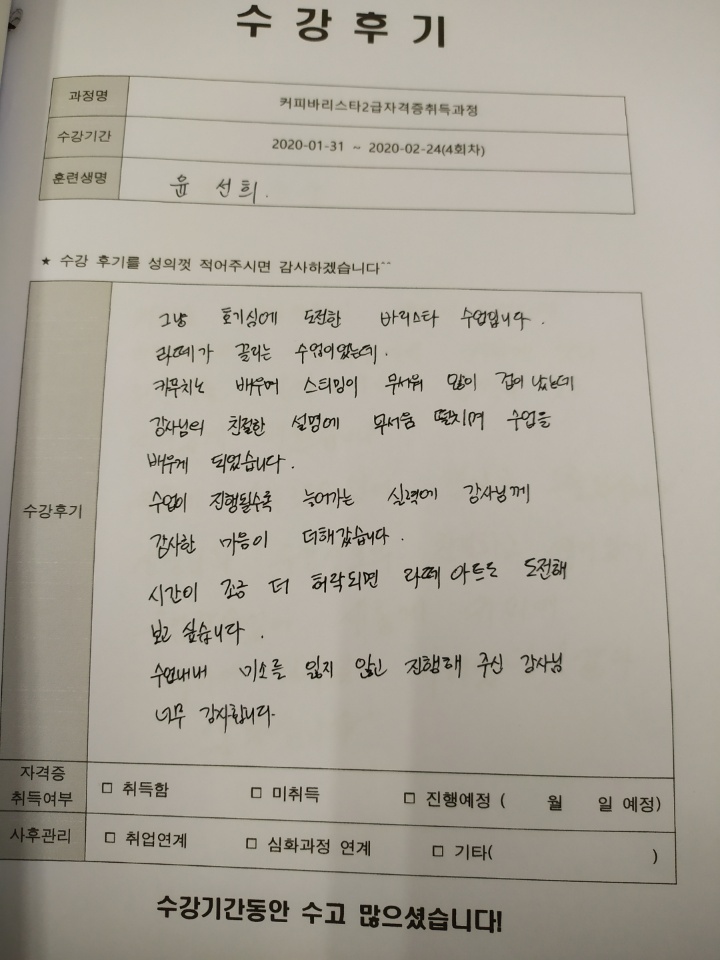 수강후기
과정명 커피바리스타2급자격증취득과정
수강기간 2020-01-31 ~ 2020-02-24(4회차)
훈련생명 윤선희.
★ 수강 후기를 성의껏 적어주시면 감사하겠습니다^^
수강후기
그냥 호기심에 도전한 바리스타 수업입니다.
라떼가 끌리는 수업이었는데.
카푸치노 배우며 스티밍이 무서워 많이 겁이 났는데
강사님의 친절한 설명에 무서움 떨치며 수업을
배우게 되었습니다.
수업이 진행될수록 늘어가는 실력에 강사님께
감사한 마음이 더해갔습니다.
시간이 조금 더 허락되면 라떼 아트도 도전해
보고 싶습니다.
수업내내 미소를 잃지 않고 진행해 주신 강사님
너무 감사합니다.
자격증 취득여부 □ 취득함 □ 미취득 □ 진행예정 ( 월 일 예정)
사후관리 □ 취업연계 □ 심화과정 연계 □ 기타( )
수강기간동안 수고 많으셨습니다!